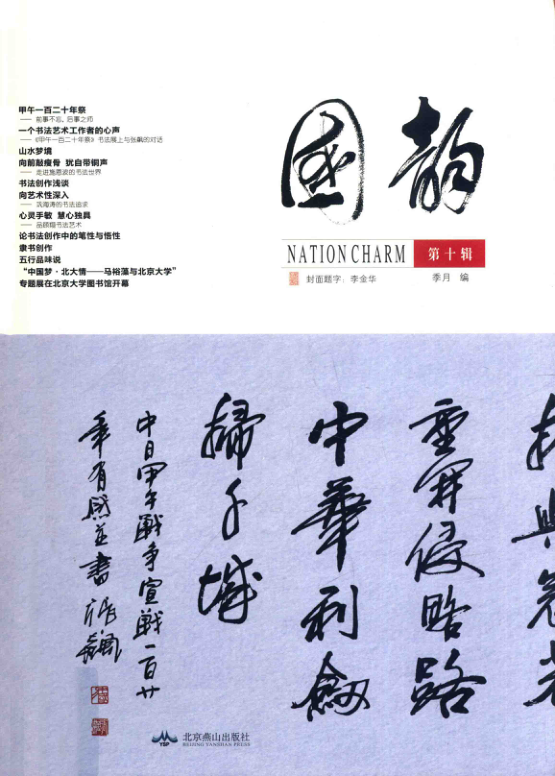 甲午一百二十年祭
—— 前事不忘，后事之师
一个书法艺术工作者的心声
——《甲午一百二十年祭》书法展上与张飙的对话
山水梦境
向前敲瘦骨 犹自带铜声
—— 走进施恩波的书法世界
书法创作浅谈
向艺术性深入
心灵手敏 慧心独具
论书法创作中的笔性与悟性
隶书创作
五行品味说
“中国梦·北大情——马裕藻与北京大学”
专题展在北京大学图书馆开幕
國韵
NATION CHARM
第十辑
封面题字：李金华
季月 编
侵略路
中華利劍
掃
中日甲午戰争宣戰一百廿
年有感並書
北京燕山出版社
BEIJING YANSHAN PRESS
YSP